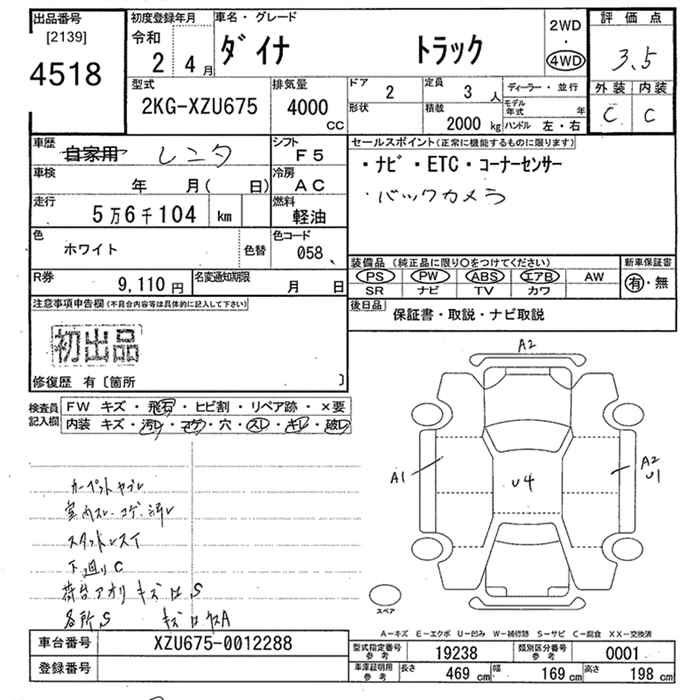 出品番号
[2139]
4518
初度登録年月
令和
2 4月
車名・グレード
ダイナ トラック
2WD
・
4WD
評価点
3.5
外装 内装
C C
型式
2KG-XZU675
排気量
4000
CC
ドア
2
定員
3 人
形状
積載
2000 kg
ディーラー・並行
モデル
年式 年
ハンドル 左・右
車歴
自家用 レンタ
シフト
F5
車検
年 月( 日)
冷房
AC
走行
5万6千104 km
燃料
軽油
色
ホワイト
色替
色コード
058
セールスポイント(正常に機能するものに限ります)
・ナビ・ETC・コーナーセンサー
・バックカメラ
装備品 (純正品に限り○をつけてください)
PS PW ABS エアB AW
SR ナビ TV カワ
新車保証書
有・無
R券
9,110円
名変通知期限
月 日
後日品
保証書・取説・ナビ取説
注意事項申告欄(不具合内容等は具体的に記入して下さい)
初出品
修復歴 有〔箇所 〕
検査員
記入欄
FW キズ・飛石・ヒビ割・リペア跡・×要
内装 キズ・汚レ・コゲ・穴・スレ・キレ・破レ
カーペットヤブレ
室内スレ・コゲ・汚レ
スタットレスイ
下廻りC
荷台アオリ キズ凹 S
各所S
A2
A1
U4
A2
U1
スペア
A-キズ E-エクボ U-凹み W-補修跡 S-サビ C-腐食 XX-交換済
車台番号
XZU675-0012288
登録番号
型式指定番号
参考
19238
類別区分番号
参考
0001
車庫証明用
参考
長さ 469 cm 幅 169 cm 高さ 198 cm